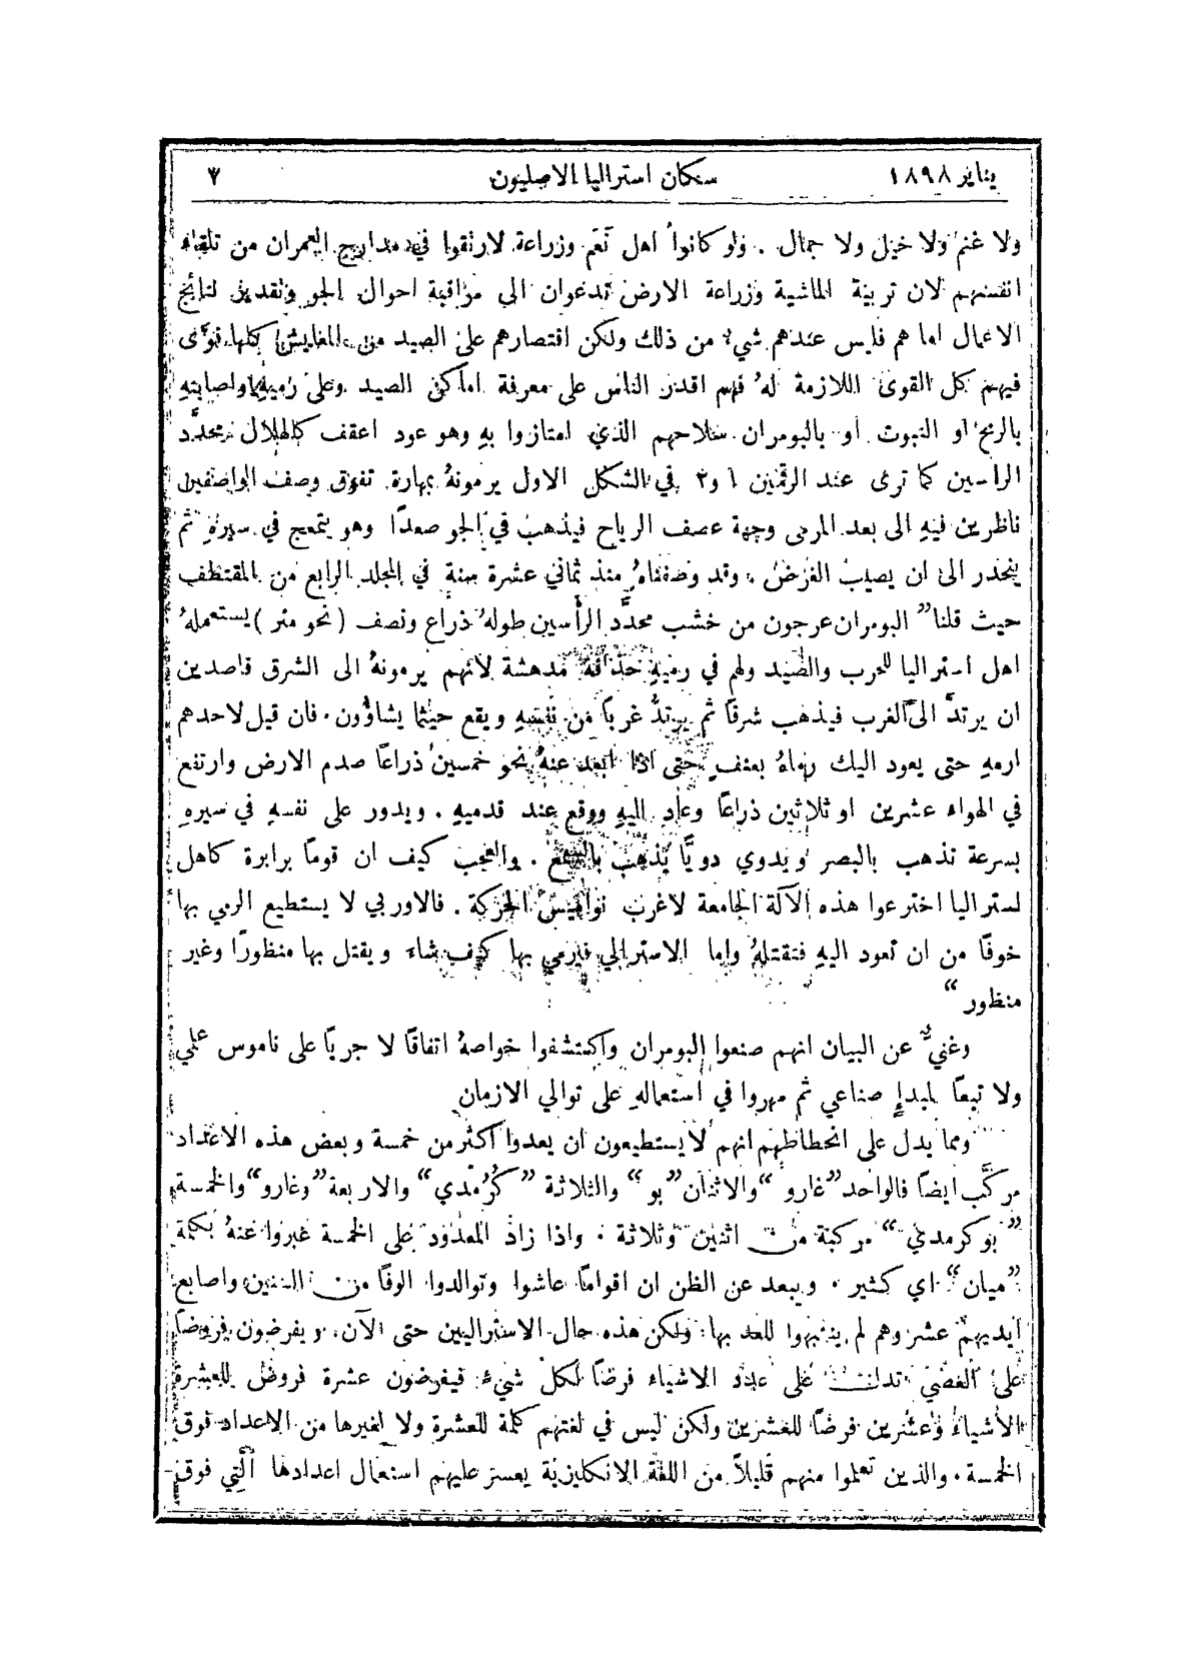 يناير ١٨٩٨
سكان استراليا الاصليون
٣
ولا غنم ولا خيل ولا جمال . ولو كانوا اهل نَعَم وزراعة لارتقوا في مدارج العمران من تلقاء
انفسهم لان تربية الماشية وزراعة الارض تدعوان الى مراقبة احوال الجو وتقدير نتائج
الاعمال اما هم فليس عندهم شيء من ذلك ولكن اقتصارهم على الصيد من المعايش كلها قوَّى
فيهم كل القوى اللازمة لهُ فهم اقدر الناس على معرفة اماكن الصيد وعلى رميهِ واصابتهِ
بالرمح او النبوت او بالبومران سلاحهم الذي امتازوا بهِ وهو عود اعقف كالهلال محدَّد
الراسين كما ترى عند الرقمين ١ و٢ في الشكل الاول يرمونهُ بمهارة تفوق وصف الواصفين
ناظرين فيهِ الى بعد المرمى وجهة عصف الرياح فيذهب في الجو صعدًا وهو يتمعج في سيرهِ ثم
ينحدر الى ان يصيب الغرض . وقد وصفناهُ منذ ثماني عشرة سنة في المجلد الرابع من المقتطف
حيث قلنا ” البومران عرجون من خشب محدَّد الرأسين طولهُ ذراع ونصف ( نحو متر ) يستعملهُ
اهل استراليا للحرب والصيد ولهم في رميهِ حذاقة مدهشة لانهم يرمونهُ الى الشرق قاصدين
ان يرتدَّ الى الغرب فيذهب شرقًا ثم يرتدُّ غربًا من نفسهِ ويقع حيثما يشاؤون . فان قيل لاحدهم
ارمهِ حتى يعود اليك رماهُ بعنف حتى اذا ابعد عنهُ نحو خمسين ذراعًا صدم الارض وارتفع
في الهواء عشرين او ثلاثين ذراعًا وعاد اليهِ ووقع عند قدميهِ . ويدور على نفسهِ في سيرهِ
بسرعة تذهب بالبصر ويدوي دويًّا يذهب بالسمع . والعجب كيف ان قومًا برابرة كاهل
استراليا اخترعوا هذه الآلة الجامعة لاغرب نواميس الحركة . فالاوربي لا يستطيع الرمي بها
خوفًا من ان تعود اليهِ فتقتلهُ واما الاسترالي فيرمي بها كيف شاء ويقتل بها منظورًا وغير
منظور “
وغنيٌّ عن البيان انهم صنعوا البومران واكتشفوا خواصهُ اتفاقًا لا جريًا على ناموس علمي
ولا تبعًا لمبدإٍ صناعي ثم مهروا في استعمالهِ على توالي الازمان
ومما يدل على انحطاطهم انهم لا يستطيعون ان يعدوا اكثر من خمسة وبعض هذه الاعداد
مركَّب ايضًا فالواحد ” غارو “ والاثنان ” بو “ والثلاثة ” كُرْمدي “ والاربعة ” وغارو “ والخمسة
” بوكرمدي “ مركبة من اثنين وثلاثة . واذا زاد المعدود على الخمسة عبروا عنهُ بكلمة
” ميان “ اي كثير . ويبعد عن الظن ان اقوامًا عاشوا وتوالدوا الوفًا من السنين واصابع
ايديهم عشر وهم لم ينتبهوا للعد بها ولكن هذه حال الاستراليين حتى الآن . ويفرضون فروضًا
على العصي تدلّ على عدد الاشياء فرضًا لكل شيءٍ فيفرضون عشرة فروض للعشرة
الاشياء وعشرين فرضًا للعشرين ولكن ليس في لغتهم كلمة للعشرة ولا لغيرها من الاعداد فوق
الخمسة . والذين تعلموا منهم قليلاً من اللغة الانكليزية يعسر عليهم استعمال اعدادها التي فوق